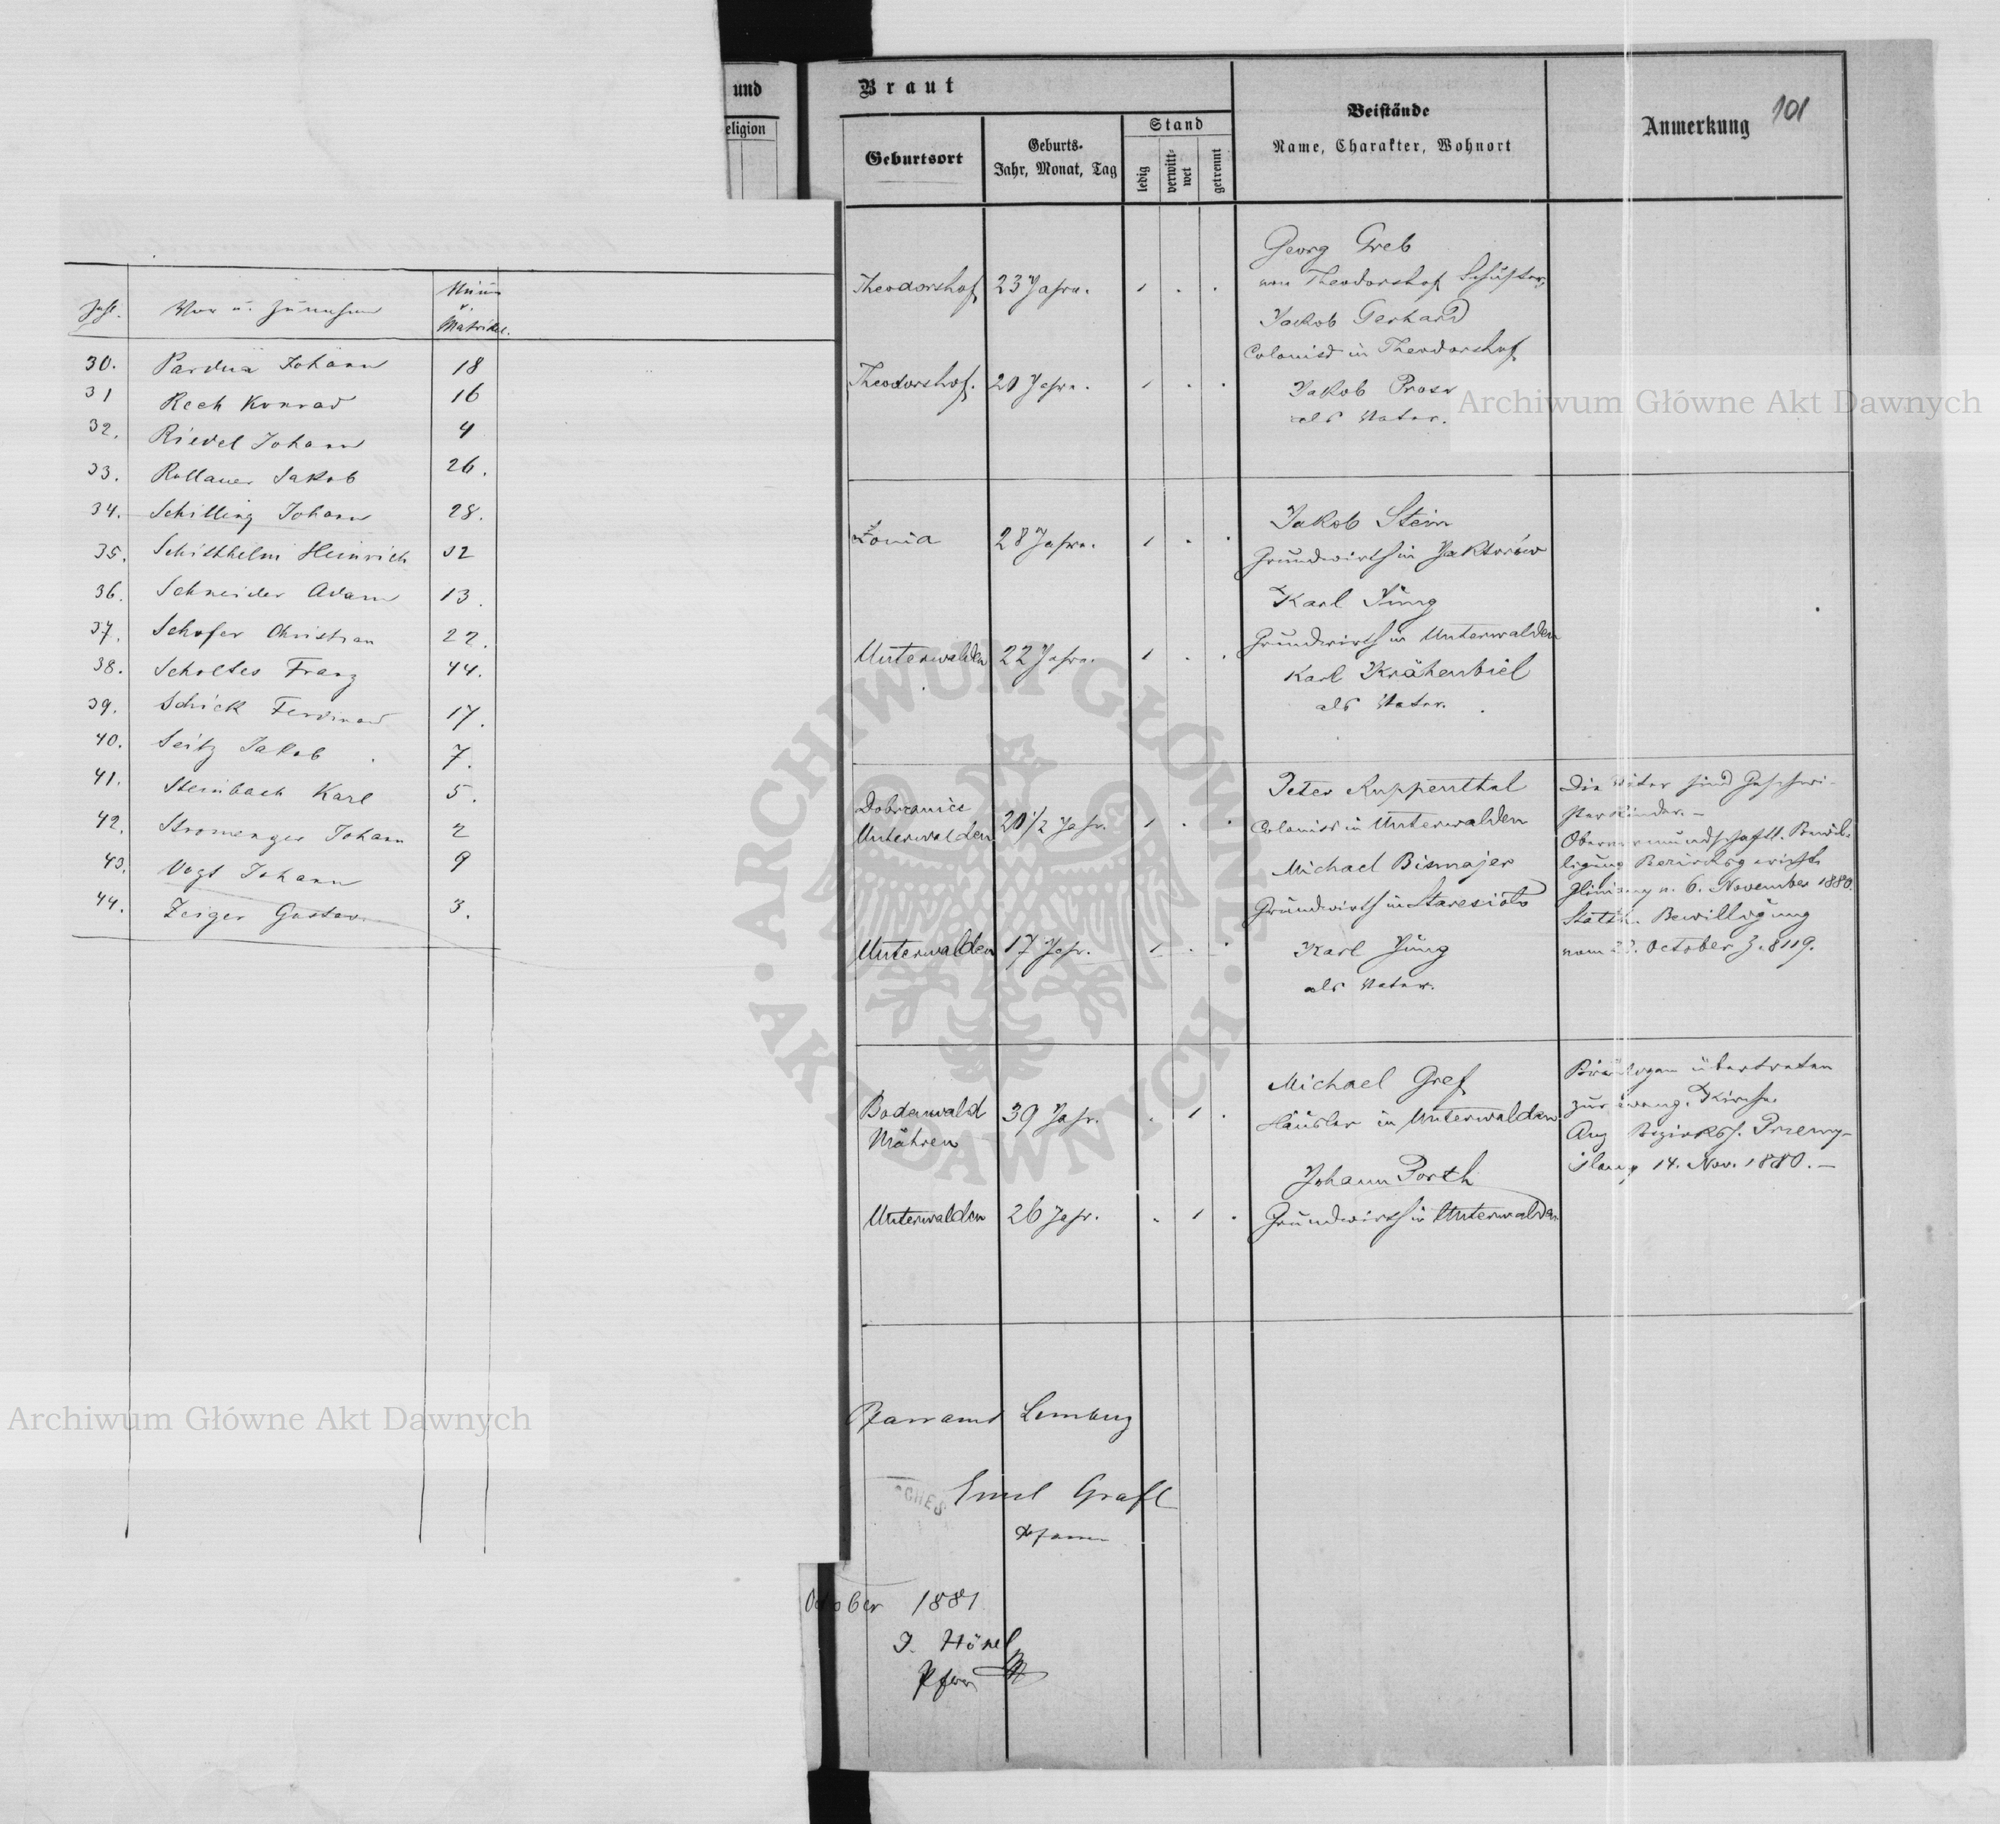 Zahl.
Vor u. Zunahme
Num
v.
Matrikel.
30. Pardua Johann 18
31 Rech Konrad 16
32. Riedel Johann 4
33. Rollauer Jakob 26.
34. Schilling Johann 28.
35. Schitthelm Heinrich 32
36. Schneider Adam 13.
37. Schofer Christian 22.
38. Scholtes Franz 44.
39. Schick Ferdinand 17.
40. Seitz Jakob 7.
41. Steinbach Karl 5.
42. Stromenger Johann 2
43. Vogt Johann 9
44. Zeiger Gustav 3.
und
eligion
Braut
Geburtsort
Geburts-
Jahr, Monat, Tag
Stand
ledig
verwitt-
wet
getrennt
Beistände
Name, Charakter, Wohnort
Anmerkung
101
Theodorshof 23 Jahre.
Georg Greb
von Theodorshof Schuster,
Jakob Gerhard
Colonist in Theodorshof
Theodorshof. 20 Jahre.
Jakob Prosr
als Vater.
Łonia 28 Jahre.
Jakob Stein
Grundwirth in Jaktorów
Karl Jung
Grundwirth in Unterwalden
Unterwalden 22 Jahre.
Karl Krähenbiel
als Vater.
Dobrzanica
Unterwalden 20 1/2 Jahr.
Peter Ruppenthal
Colonist in Unterwalden
Michael Bismajer
Grundwirth in Staresioło
Unterwalden 17 Jahr.
Karl Jung
als Vater.
Die Väter sind Geschwi-
sterkinder. –
Obervormundschaftl. Bewil-
ligung Bezirksgericht
Gliniany v. 6. November 1880.
Statth. Bewilligung
vom October Z. 8119.
Bodenwald
Mähren
39 Jahr.
Michael Gref
Häusler in Unterwalden.
Johann Porth
Grundwirth in Unterwalden
Unterwalden 26 Jahr.
Bräutigam übertreten
zur evang. Kirche.
Anz Bezirksh. Przemy-
ślany 14. Nov. 1880. –
Pfarramt Lemberg
CHES
Emil Grafl
Pfarrer
October 1881
J. Hönel
Pfarr
Archiwum Główne Akt Dawnych
Archiwum Główne Akt Dawnych
ARCHIWUM GŁÓWNE AKT DAWNYCH